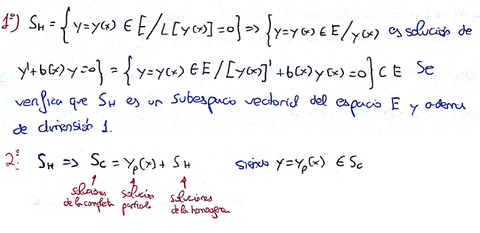 1º) S_H = {y=y(x) ∈ E / L[y(x)]=0} => {y=y(x) ∈ E / y(x) es solución de
y'+b(x)y=0} = {y=y(x) ∈ E / [y(x)]'+b(x)y(x)=0} ⊂ E Se
verifica que S_H es un subespacio vectorial del espacio E y además
de dimensión 1.
2º: S_H => S_C = y_p(x) + S_H siendo y=y_p(x) ∈ S_C
soluciones de la completa
solución particular
soluciones de la homogénea